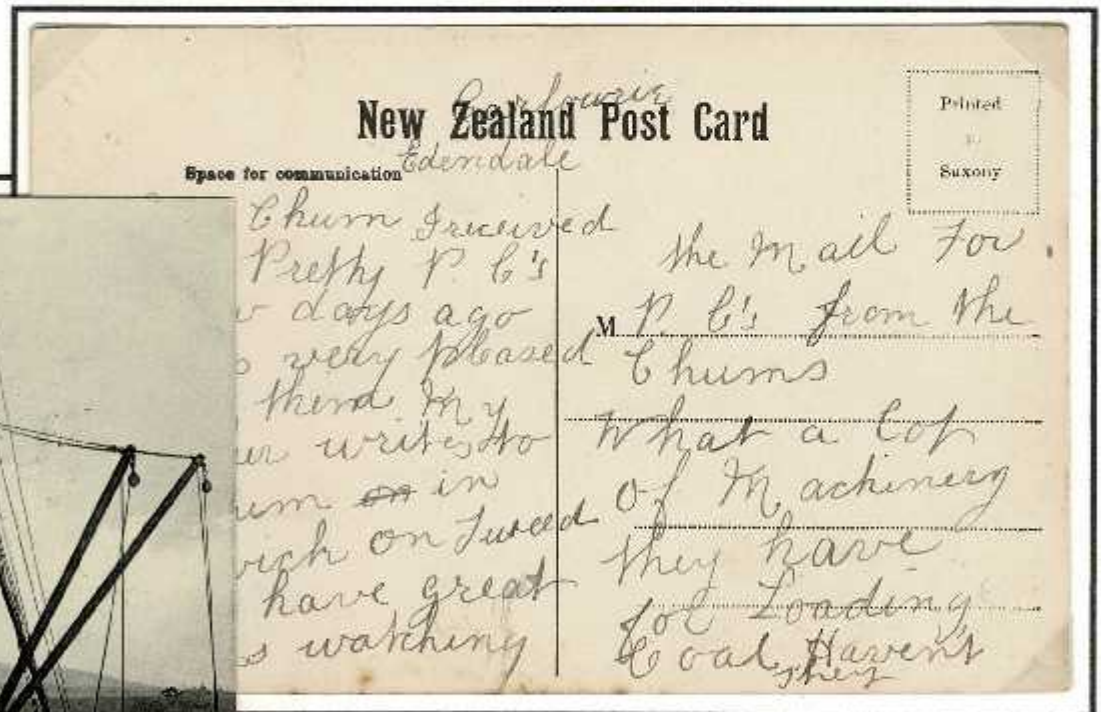 New Zealand Post Card
Edendale
Space for communication
Printed
Saxony
Chum I received
Pretty P. C's
days ago
very pleased
them My
writes to
in
on Tweed
have great
watching
the Mail For
M P. C's from the
Chums
What a Lot
of Machinery
they have
for Loading
Coal, Havent
they